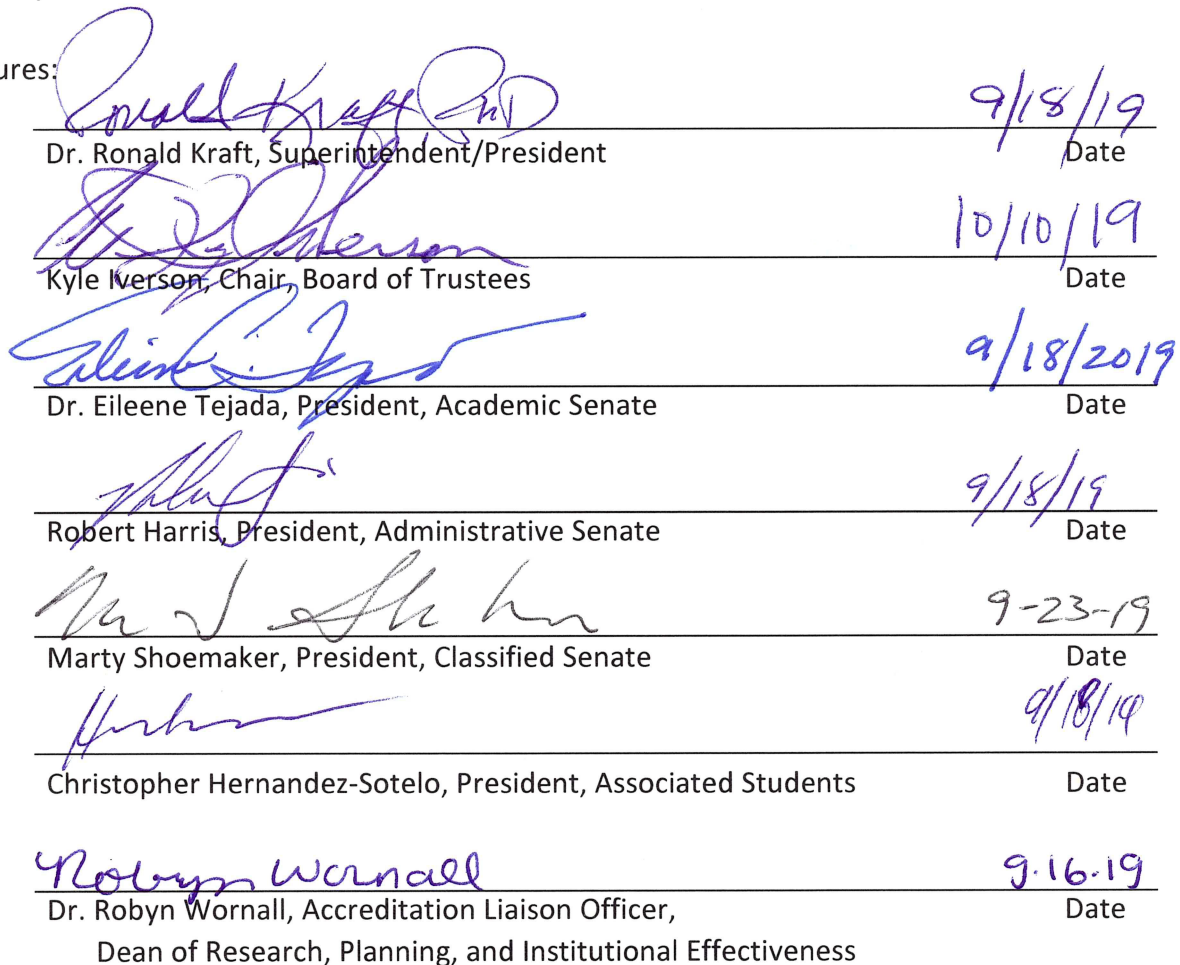 ures:
Ronald Kraft PhD 9/18/19
Dr. Ronald Kraft, Superintendent/President Date
10/10/19
Kyle Iverson, Chair, Board of Trustees Date
9/18/2019
Dr. Eileene Tejada, President, Academic Senate Date
9/18/19
Robert Harris, President, Administrative Senate Date
9-23-19
Marty Shoemaker, President, Classified Senate Date
Christopher Hernandez-Sotelo, President, Associated Students Date
Robyn Wornall 9.16.19
Dr. Robyn Wornall, Accreditation Liaison Officer, Date
Dean of Research, Planning, and Institutional Effectiveness